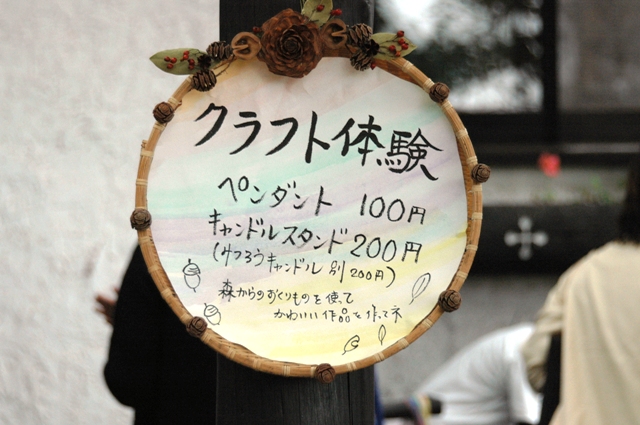 クラフト体験
ペンダント 100円
キャンドルスタンド 200円
(みつろうキャンドル 別200円)
森からのおくりものを使って
かわいい作品を作ってネ